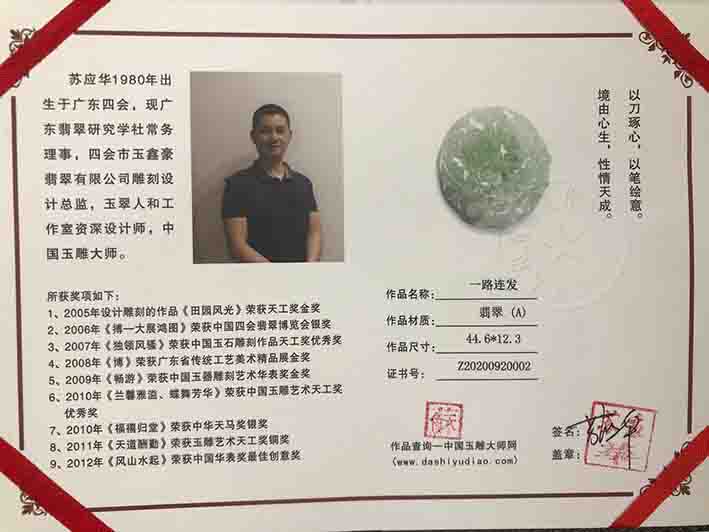 苏应华1980年出
生于广东四会，现广
东翡翠研究学社常务
理事，四会市玉鑫豪
翡翠有限公司雕刻设
计总监，玉翠人和工
作室资深设计师，中
国玉雕大师。
以刀琢心，以笔绘意。
境由心生，性情天成。
所获奖项如下：
1、2005年设计雕刻的作品《田园风光》荣获天工奖金奖
2、2006年《搏一大展鸿图》荣获中国四会翡翠博览会银奖
3、2007年《独领风骚》荣获中国玉石雕刻作品天工奖优秀奖
4、2008年《博》荣获广东省传统工艺美术精品展金奖
5、2009年《畅游》荣获中国玉器雕刻艺术华表奖金奖
6、2010年《兰馨雅滥、蝶舞芳华》荣获中国玉雕艺术天工奖
优秀奖
7、2010年《福禧归堂》荣获中华天马奖银奖
8、2011年《天道酬勤》荣获玉雕艺术天工奖铜奖
9、2012年《风山水起》荣获中国华表奖最佳创意奖
作品名称：一路连发
作品材质：翡翠 (A)
作品尺寸：44.6*12.3
证书号：Z20200920002
作品查询—中国玉雕大师网
(www.dashiyudiao.com)
签名：苏应华
盖章：